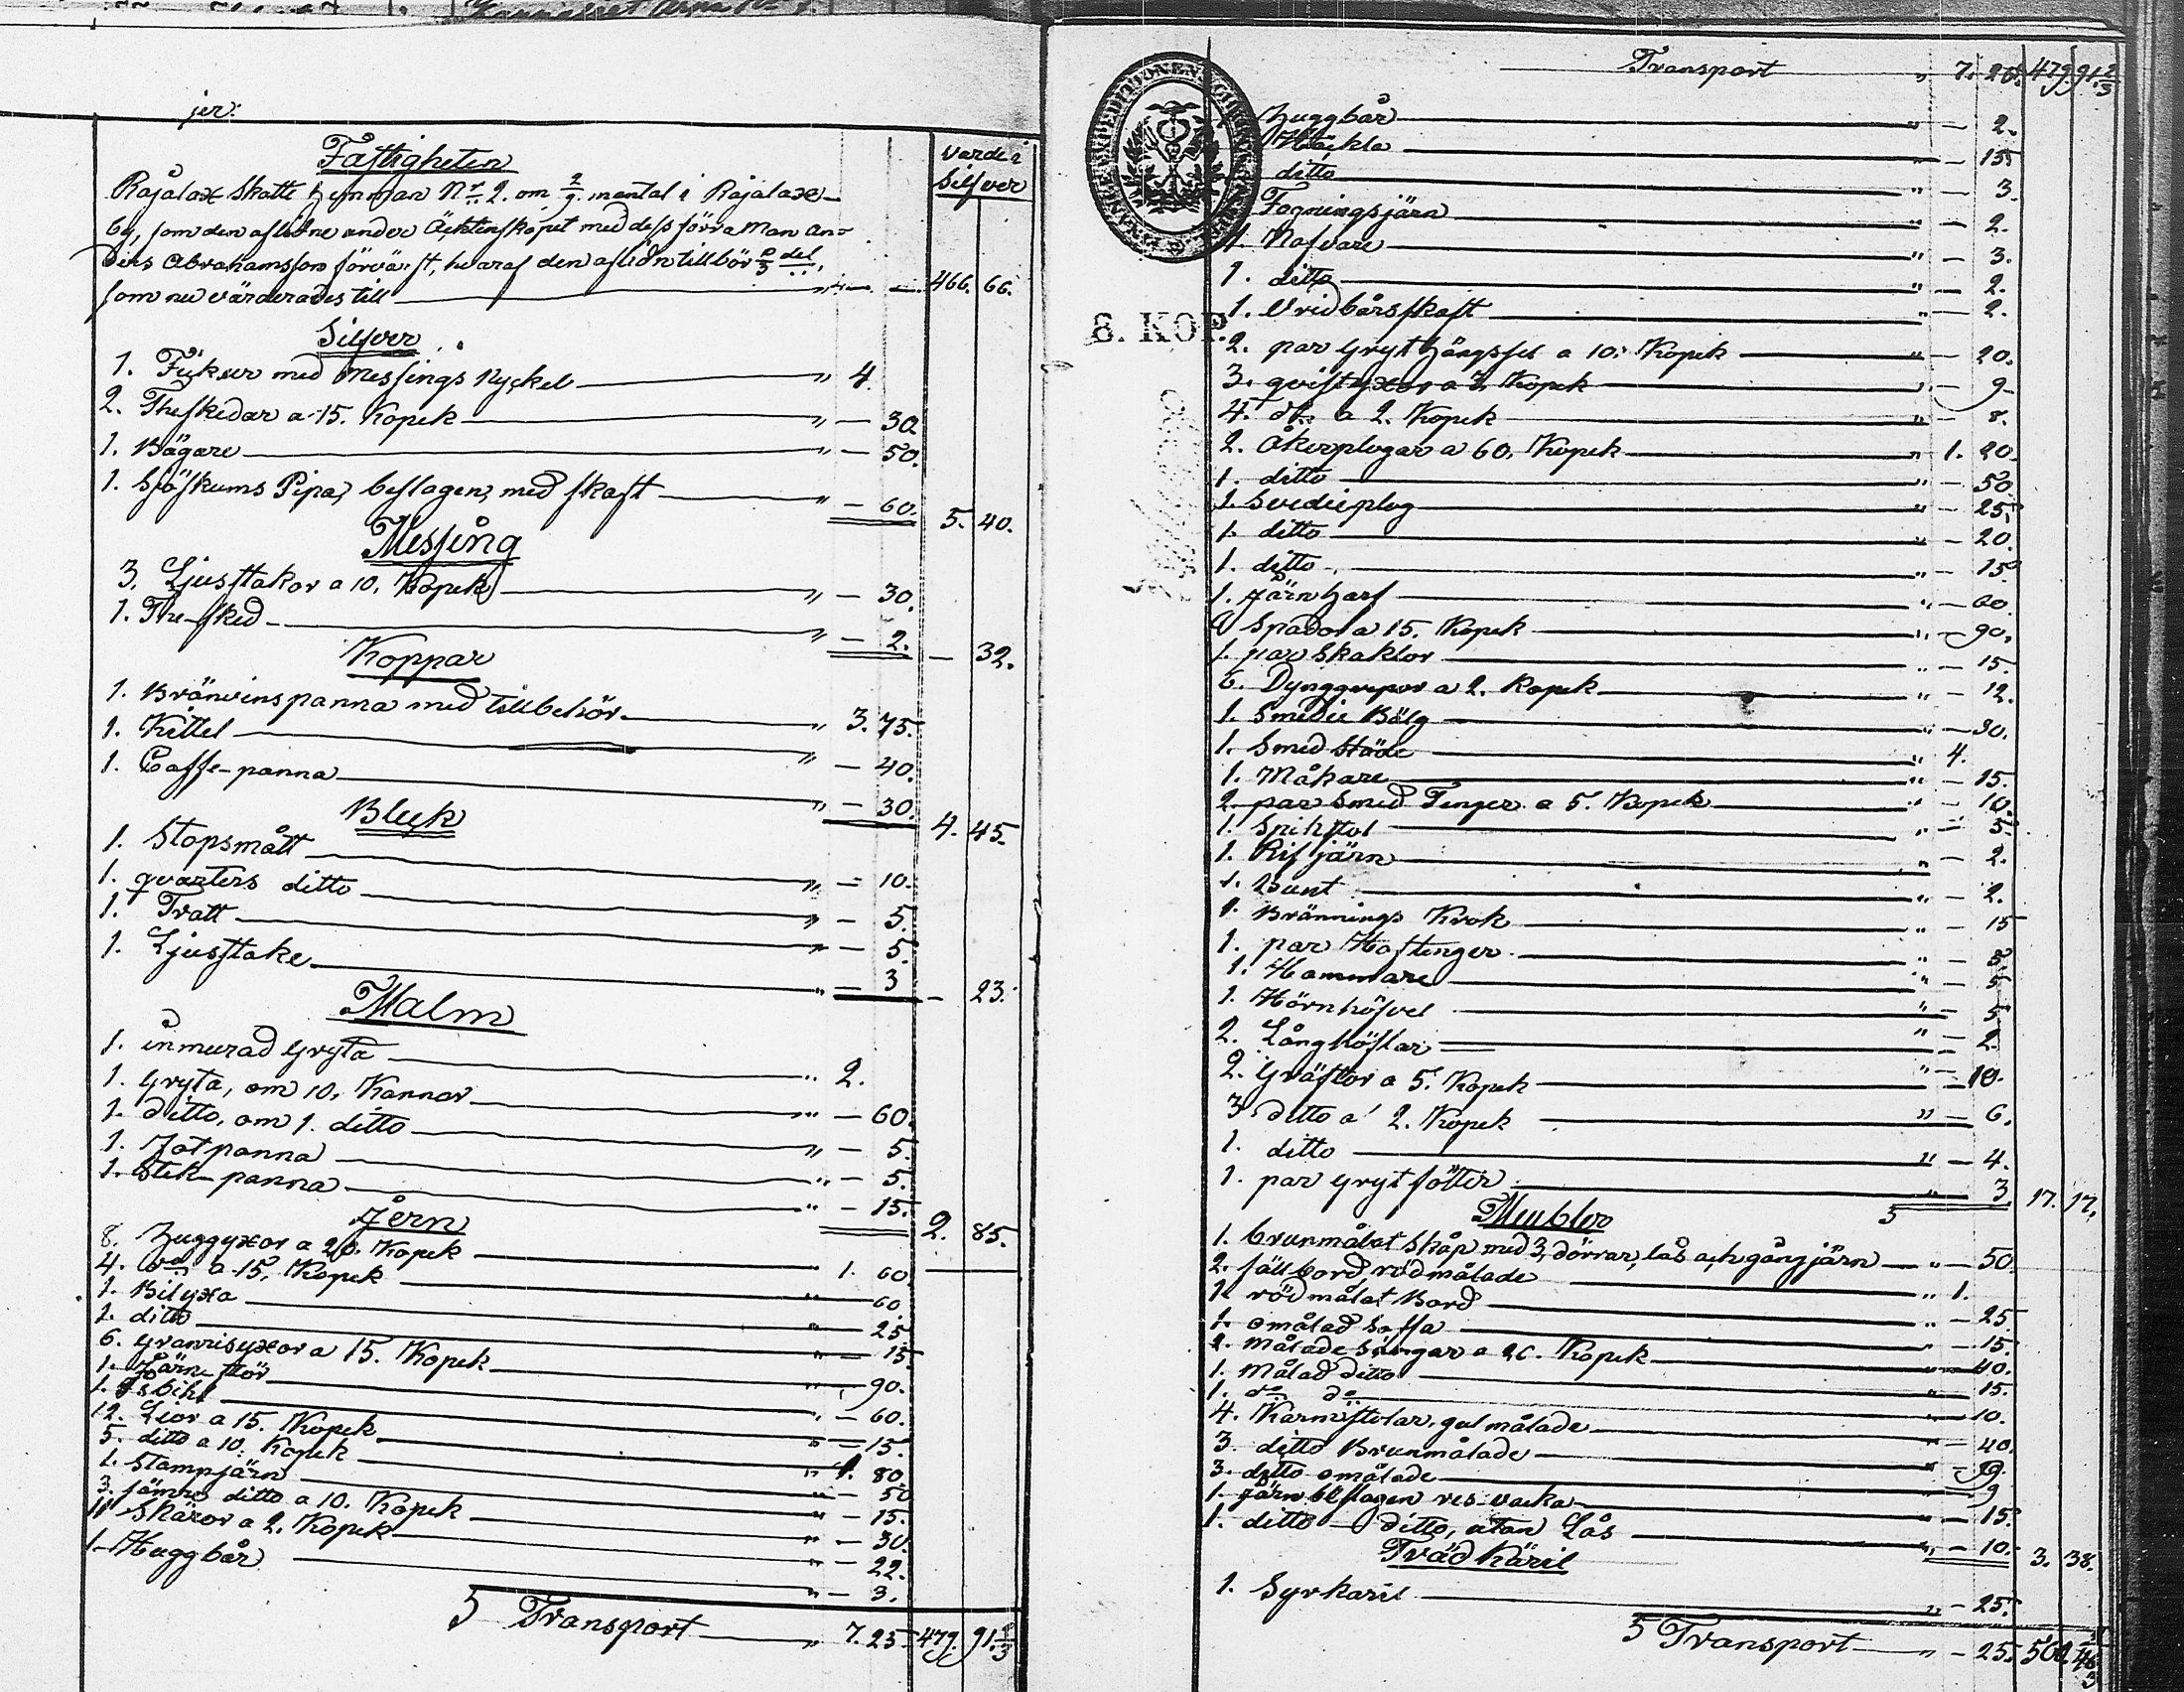 jer:
värde i
Silfver
Fastigheten
Rajalax Skatte hemman Nr 2. om 2/9 mantal i Rajalax
by, som den aflidne under Äcktenskapet med dess förra Man An-
ders Abrahamsson förvärft, hvaraf den aflidn tillhör del,
som nu värderades till — „ — — 466. 66.
Silfver
1. Fickur med Messings Nyckel — „ 4.
2. Theskedar a 15. Kopek — „ — 30.
1. Bägare — „ — 50.
1. Sjöskums Pipa, beslagen, med skaft — „ — 60. 5. 40.
Messing
3. Ljusstakar a 10. Kopek — „ — 30.
1. The-sked — „ — 2. — 32.
Koppar
1. Bränvinspanna med tillbehör — „ 3. 75.
1. Kittel — „ — 40.
1. Caffe-panna — „ — 30. 4. 45.
Bleck
1. Stopsmått — „ — 10.
1. qvarters ditto — „ — 5.
1. Tratt — „ — 5.
1. Ljusstake — „ — 3 — 23.
Malm
1. inmurad Gryta — „ 2.
1. Gryta, om 10. Kannor — „ — 60.
1. ditto, om 1. ditto — „ — 5.
1. Jotpanna — „ — 5.
1. Stek-panna — „ — 15. 2. 85.
Jern
8. Huggyxor a 20. Kopek — „ 1. 60.
4. do a 15. Kopek — „ — 60.
1. Bilyxa — „ — 25
1. ditto — „ — 15
6. Granrisyxor a 15. Kopek — „ — 90.
1. Järn-stör — „ — 60.
1. Isbihl — „ — 15.
12. Lior a 15. Kopek — „ 1. 80.
5. ditto a 10. Kopek — „ — 50
1. Stampjärn — „ — 15.
3. sämre ditto a 10. Kopek — „ — 30.
11 Skäror a 2. Kopek — „ — 22.
1. Huggbår — „ — 3.
Transport — „ 7. 25 479. 91.
Transport „ 7. 25. 479. 91. 2/3
8. KOP.
Huggbår — „ — 2.
Häckla — „ — 15
ditto — „ — 3.
Fogningsjärn — „ — 2.
1. Nafvare — „ — 3.
1. ditto — „ — 2.
1. Vridbårsskaft — „ — 2.
2. par Gryt hängslel a 10. Kopek — „ — 20.
3. qvistyxor a 3. Kopek — „ — 9
4. do a 2. Kopek — „ — 8.
2. Åkerplogar a 60. Kopek — „ 1. 20.
1. ditto — „ — 50
1. Svedieplog — „ — 25.
1. ditto — „ — 20.
1. ditto — „ — 15
1. Järnharf — „ — 60.
6 Spador a 15. Kopek — „ — 90.
1. par Skaklor — „ — 15.
6. Dynggrepor a 2. Kopek — „ — 12.
1. Smedie Bälg — „ — 30.
1. Smed Städe — „ 4.
1. Måkare — „ — 15.
2. par Smed Tenger a 5. Kopek — „ — 10.
1. Spikstol — „ — 5.
1. Rifjärn — „ — 2.
1. Bunt — „ — 2.
1. Brännings Krok — „ — 15
1. par Hoftenger — „ — 5
1. Hammare — „ — 5
1. Hörnhöfvel — „ — 5
2. Långhöflar — „ — 2.
2. Gräftor a 5. Kopek — „ — 10.
3. ditto a 2. Kopek — „ — 6.
1. ditto — „ — 4.
1. par Grytfötter — „ — 3. 17. 17.
Meubler
1. brunmålat Skåp med 3. dörrar, lås och gångjärn — „ — 50.
2. fällbord, rödmålade — „ 1.
1. rödmålat Bord — „ — 25
1. omålad Soffa — „ — 15.
2. målade Sängar a 20. Kopek — „ — 40.
1. Målad ditto — „ — 15.
1. do do — „ — 10.
4. Karmstolar, gulmålade — „ — 40.
3. ditto Brunmålade — „ — 19.
3. ditto omålade — „ — 9
1. järnbeslagen res-vacka — „ — 15.
1. ditto — ditto, utan Lås — „ — 10. 3. 38.
Träd Käril
1. Syrkäril — „ — 25.
Transport — „ — 25. 500. 46